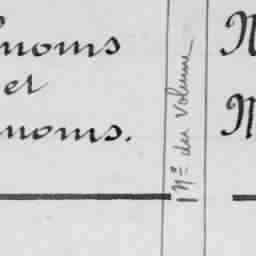 noms
et
noms.
N° du volume
N
N